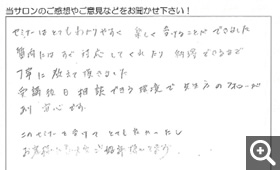 当サロンのご感想やご意見などをお聞かせ下さい！
セミナーはとてもわかりやすく 楽しく受けることができました
質問にはすぐ対応してくれたり 納得できるまで
丁寧に教えて頂きました
受講後日相談できる環境で 先生のフォローが
あり 安心です。
このセミナーを受けて とても良かったし
お友達に